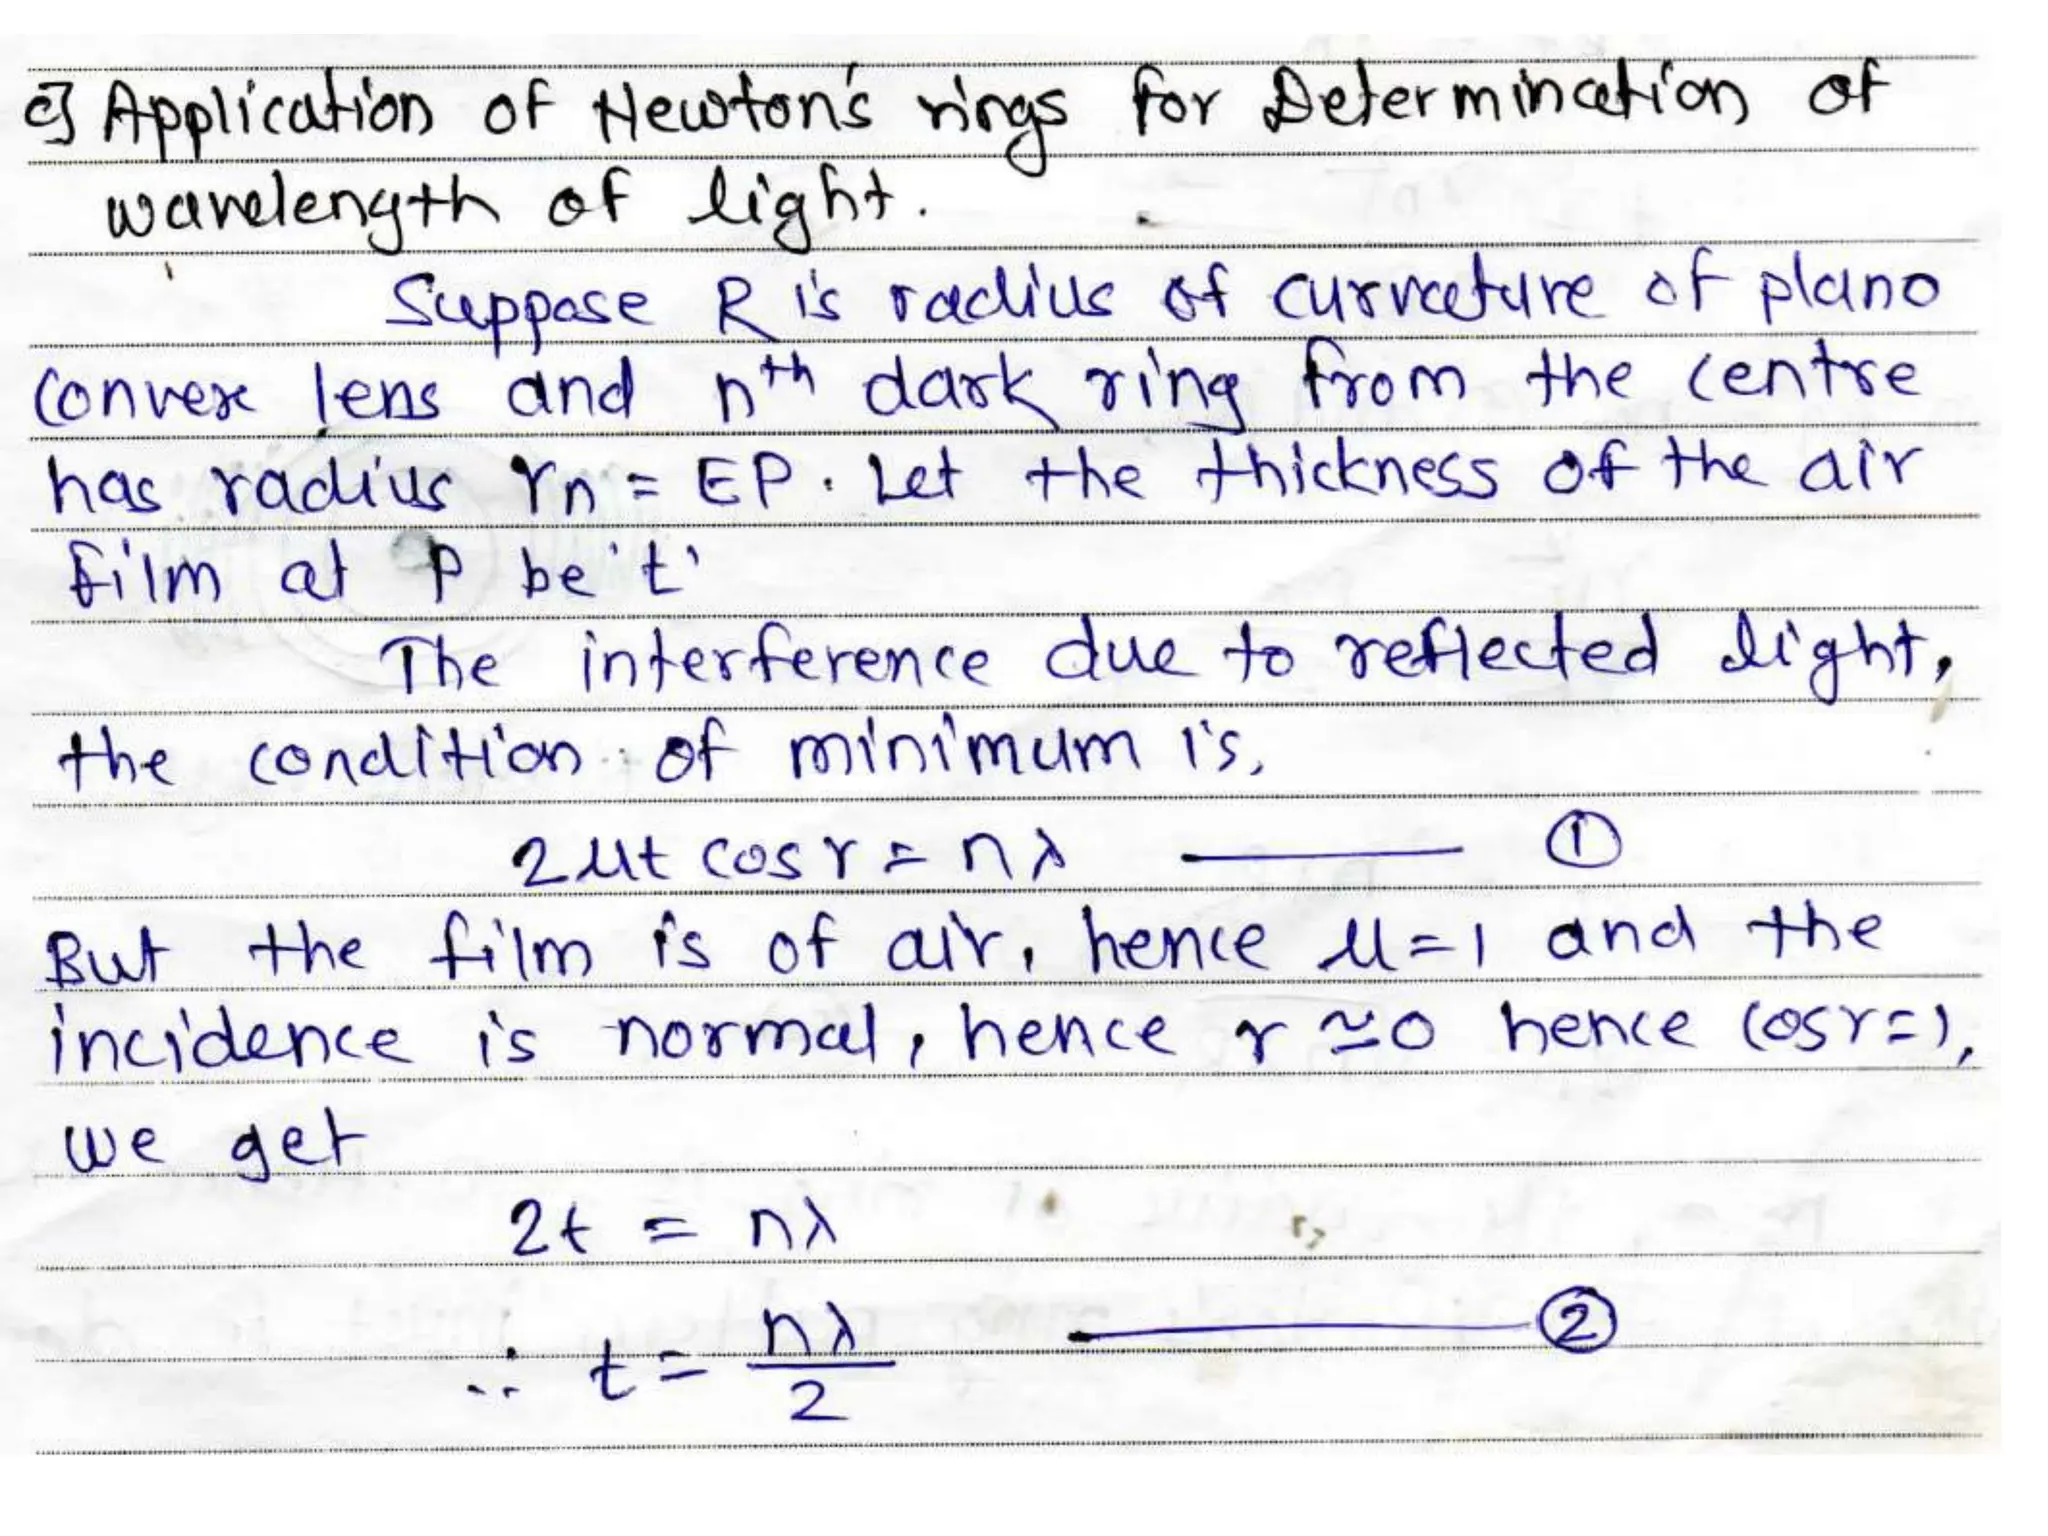 c] Application of Newton's rings for Determination of
wavelength of light.
Suppose R is radius of curvature of plano
convex lens and nth dark ring from the centre
has radius rn = EP. Let the thickness of the air
film at P be 't'
The interference due to reflected light,
the condition of minimum is,
2μt cos r = nλ ——— ①
But the film is of air, hence μ=1 and the
incidence is normal, hence r ≃ 0 hence cos r = 1,
we get
2t = nλ
∴ t = nλ/2 ——— ②